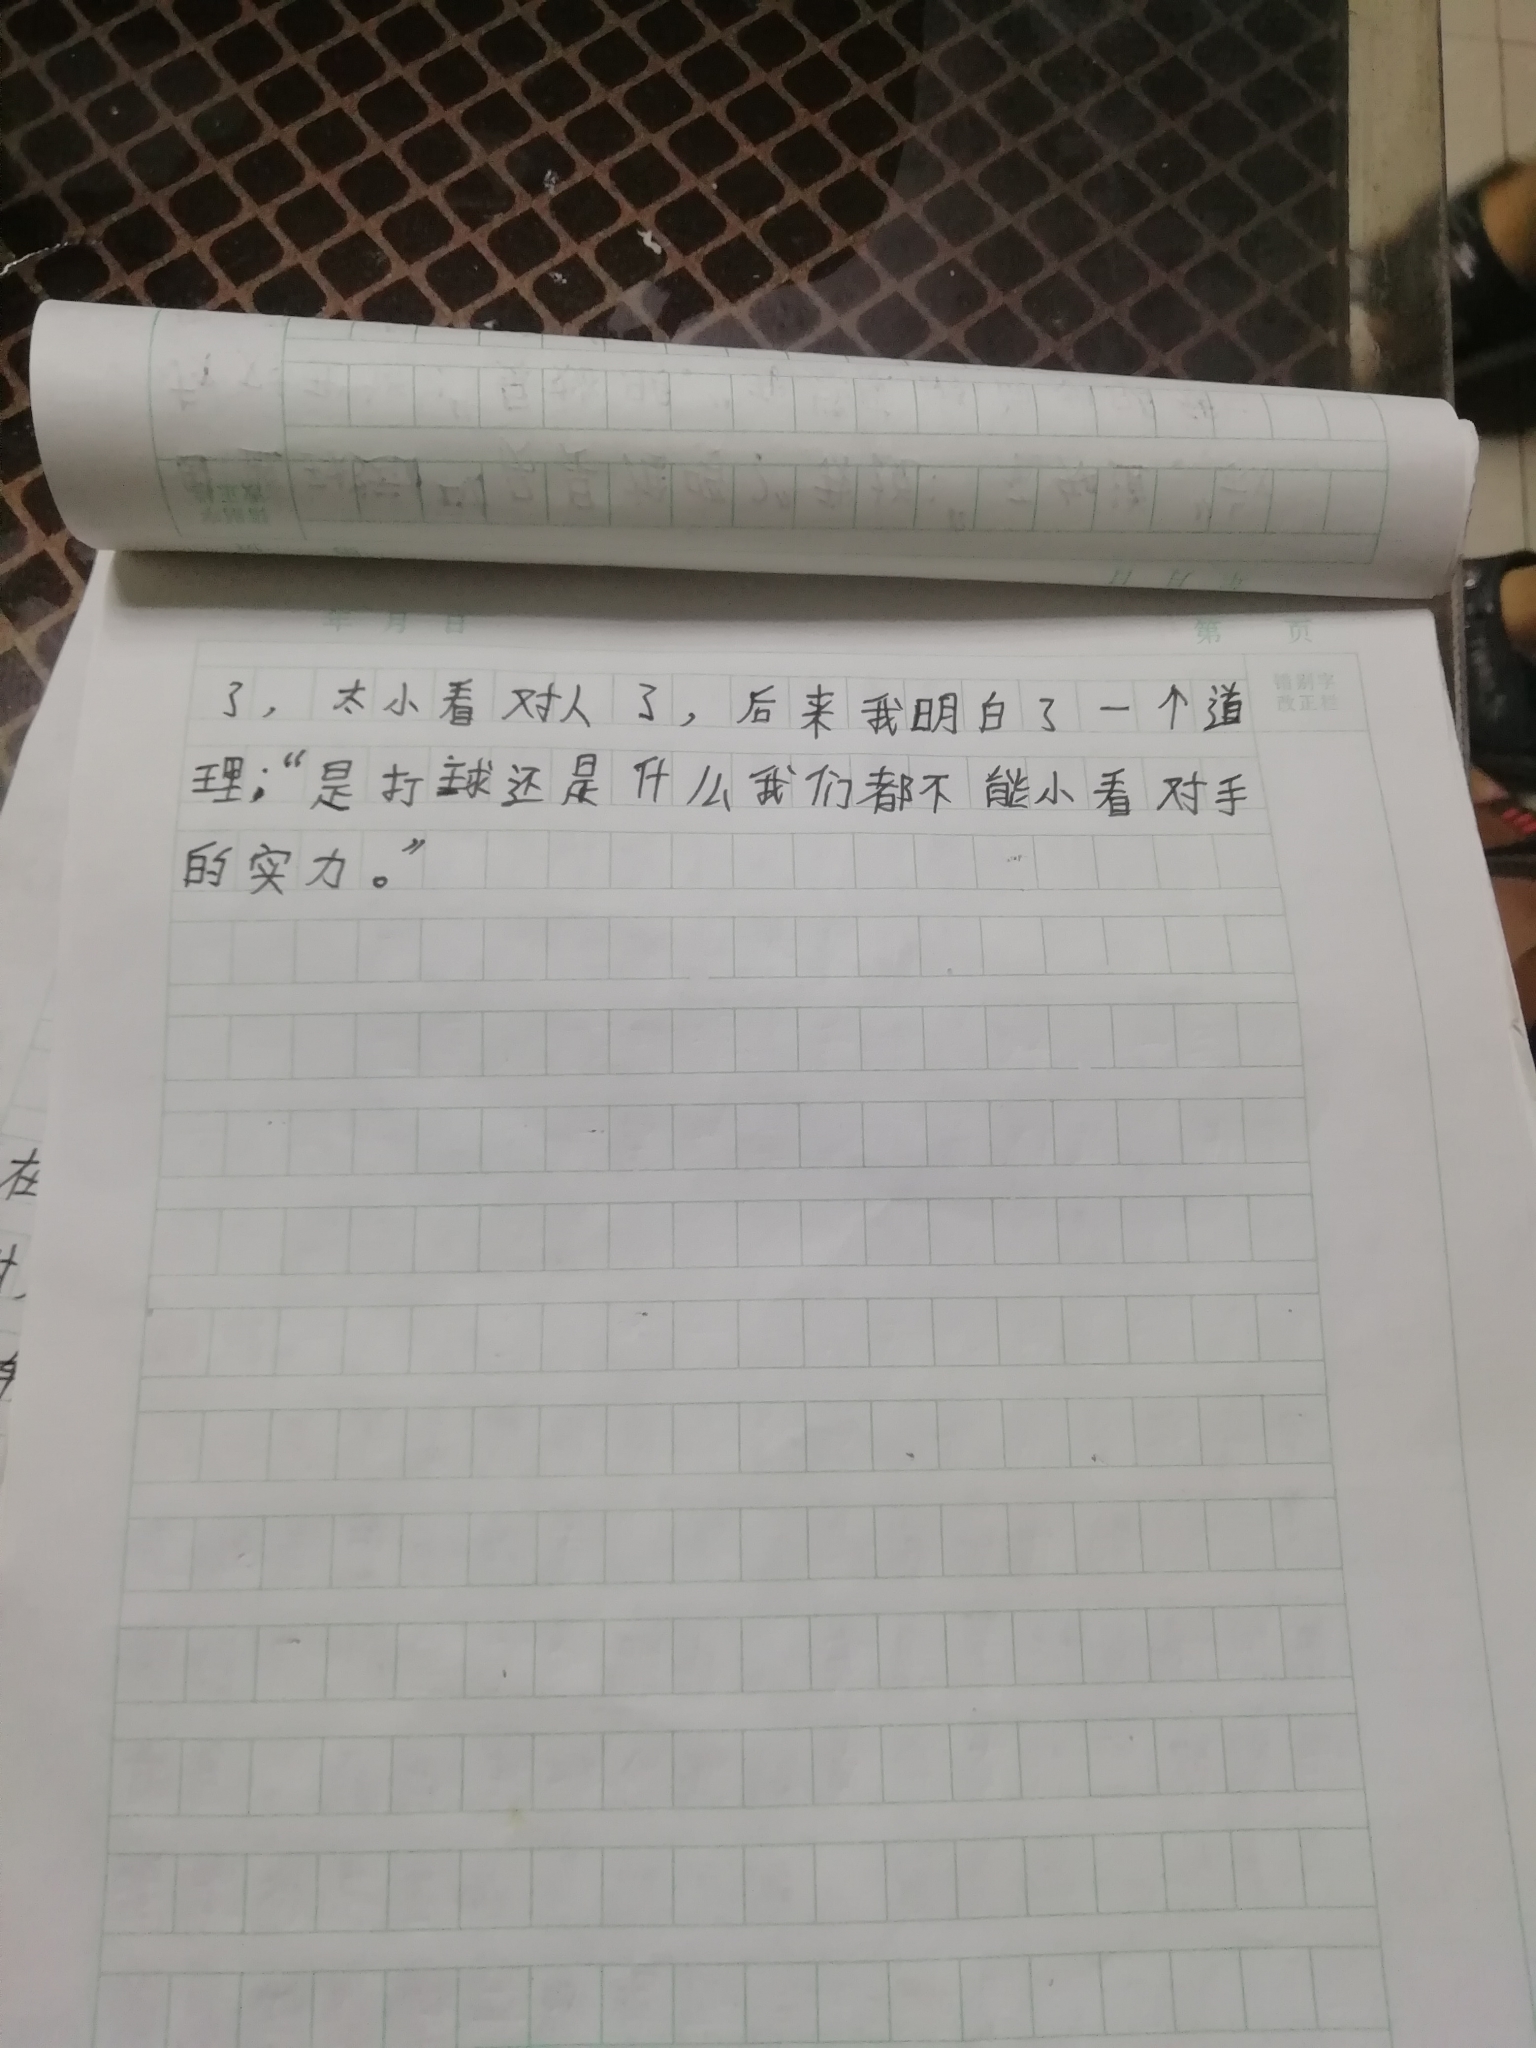 年 月 日
第 页
了，太小看对人了，后来我明白了一个道
错别字
改正栏
理；“是打球还是什么我们都不能小看对手
的实力。”
在